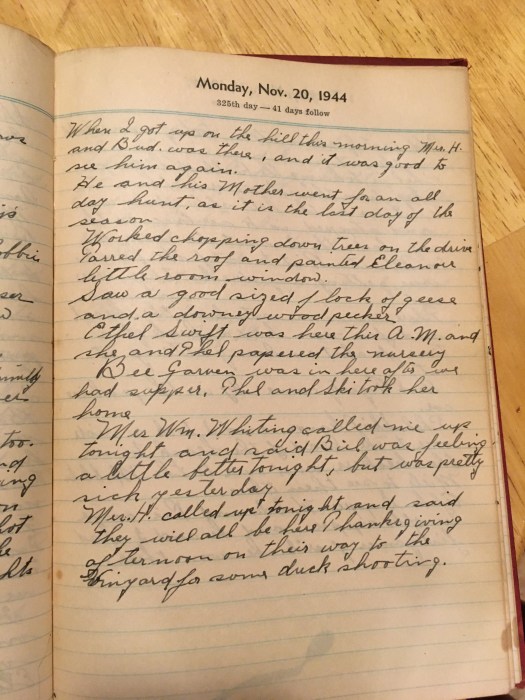 Monday, Nov. 20, 1944
325th day — 41 days follow
When I got up on the hill this morning Mrs. H.
and Bud. was there, and it was good to
see him again.
He and his Mother went for an all
day hunt, as it is the last day of the
season
Worked chopping down trees on the drive
Tarred the roof and painted Eleanor
little room window.
Saw a good sized flock of geese
and a downey woodpecker
Ethel Swift was here this A.M. and
she and Thel papered the nursery
Bee Garven was in here after we
had supper. Thel and Ski took her
home
Mrs Wm. Whiting called me up
tonight and said Bill was feeling
a little better tonight, but was pretty
sick yesterday
Mrs. H. called up tonight and said
they will all be here Thanksgiving
afternoon on their way to the
Vinyard for some duck shooting.